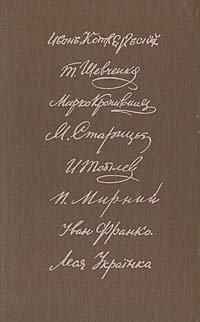 Иванъ Котляревский
Т. Шевченко
Марко Кропивниц
М. Старицкий
И Тобілев
П. Мирний
Іван Франко.
Леся Українка